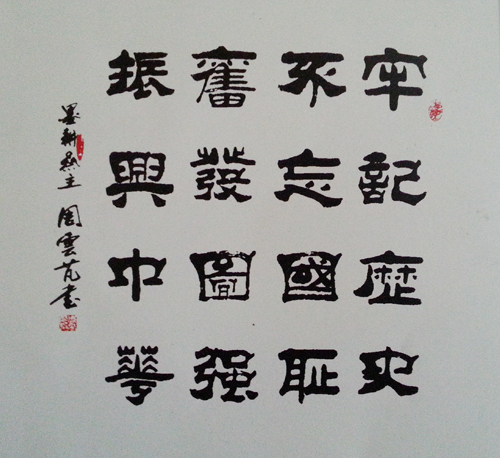 牢記歷史
不忘國恥
奮發圖强
振興中華
墨耕齋主周雲芃書